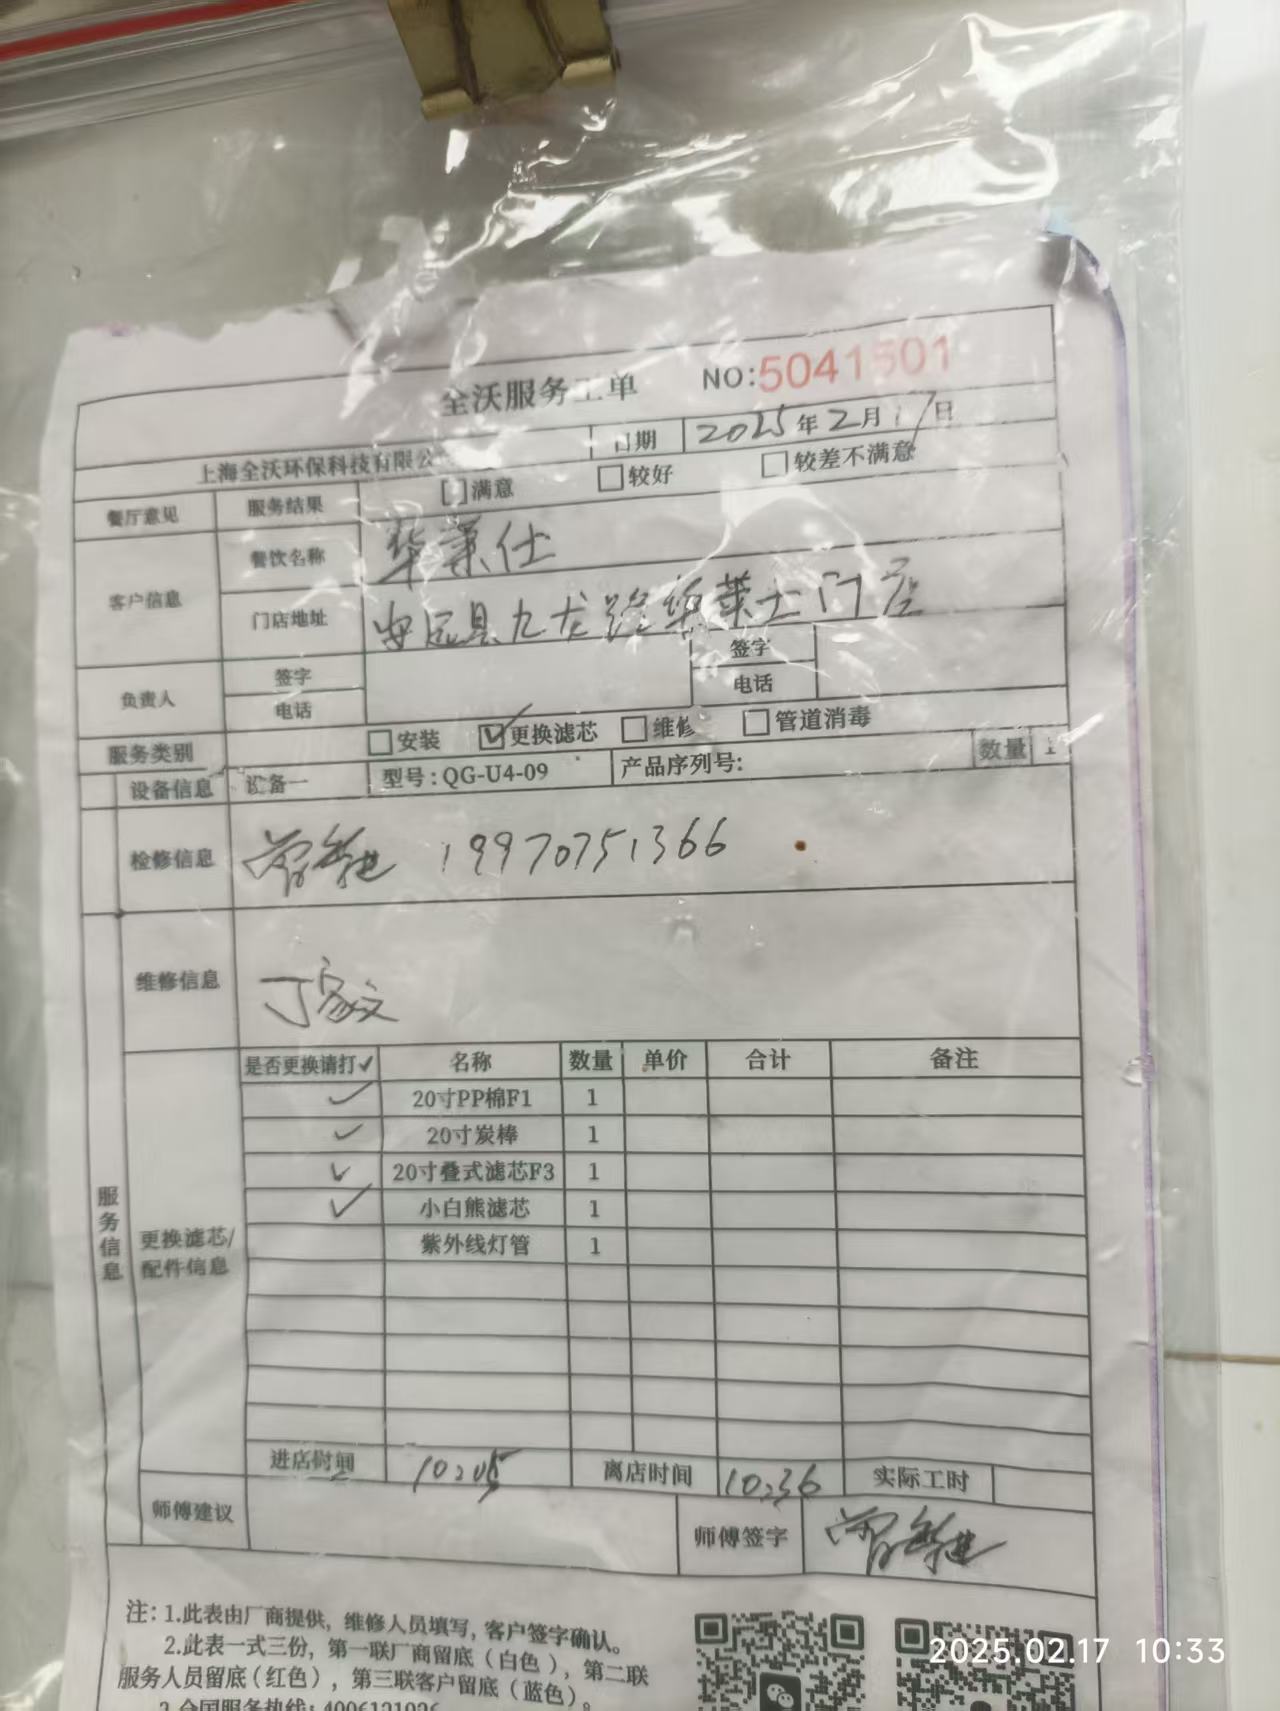 全沃服务工单 NO:5041501
上海全沃环保科技有限公 日期 2025年2月17日
餐厅意见 服务结果 满意 较好 较差不满意
客户信息 餐饮名称 华莱仕
门店地址 安远县九龙路华莱士门店
负责人 签字 签字
电话 电话
服务类别 安装 更换滤芯 维修 管道消毒
设备信息 设备一 型号:QG-U4-09 产品序列号: 数量 1
检修信息 19970751366
维修信息 丁家文
服务信息
更换滤芯/
配件信息
是否更换请打✓ 名称 数量 单价 合计 备注
✓ 20寸PP棉F1 1
✓ 20寸炭棒 1
✓ 20寸叠式滤芯F3 1
✓ 小白熊滤芯 1
紫外线灯管 1
进店时间 10:05 离店时间 10:36 实际工时
师傅建议 师傅签字
注:1.此表由厂商提供,维修人员填写,客户签字确认。
2.此表一式三份,第一联厂商留底(白色),第二联
服务人员留底(红色),第三联客户留底(蓝色)。
全国服务热线:4006121026
2025.02.17 10:33